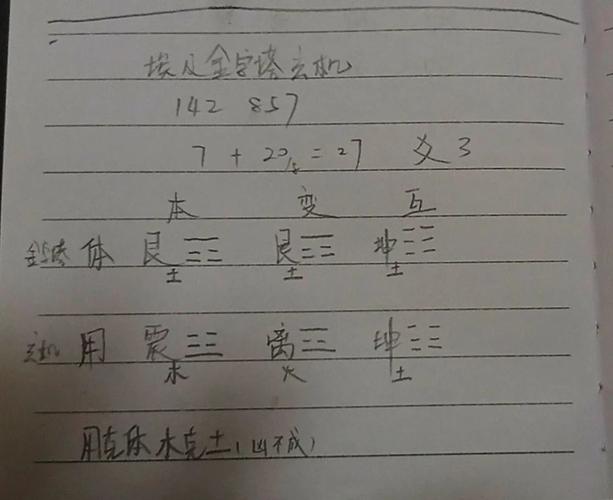 埃及金字塔玄机
142 857
7 + 20/8 = 27 爻 3
本 变 互
金字塔 体 艮 ☶ 艮 ☶ 坤 ☷
土 土 土
玄机 用 震 ☳ 离 ☲ 坤 ☷
木 火 土
用克体 木克土（凶不成）